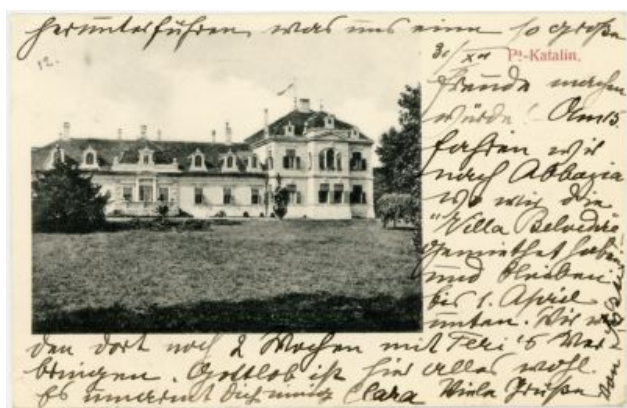 herunterführen, was uns eine so große
12.
30/XII
Pª-Katalin.
Freude machen
würde! Am 15.
fahren wir
nach Abbazia
wo wir die
"Villa Belvedere
gemiethet haben
und bleiben
bis 1. April
unten. Wir wer
den dort noch 2 Wochen mit Feri's ver
bringen. Gottlob ist hier alles wohl.
Es umarmt Dich innig Clara Viele Grüße
von